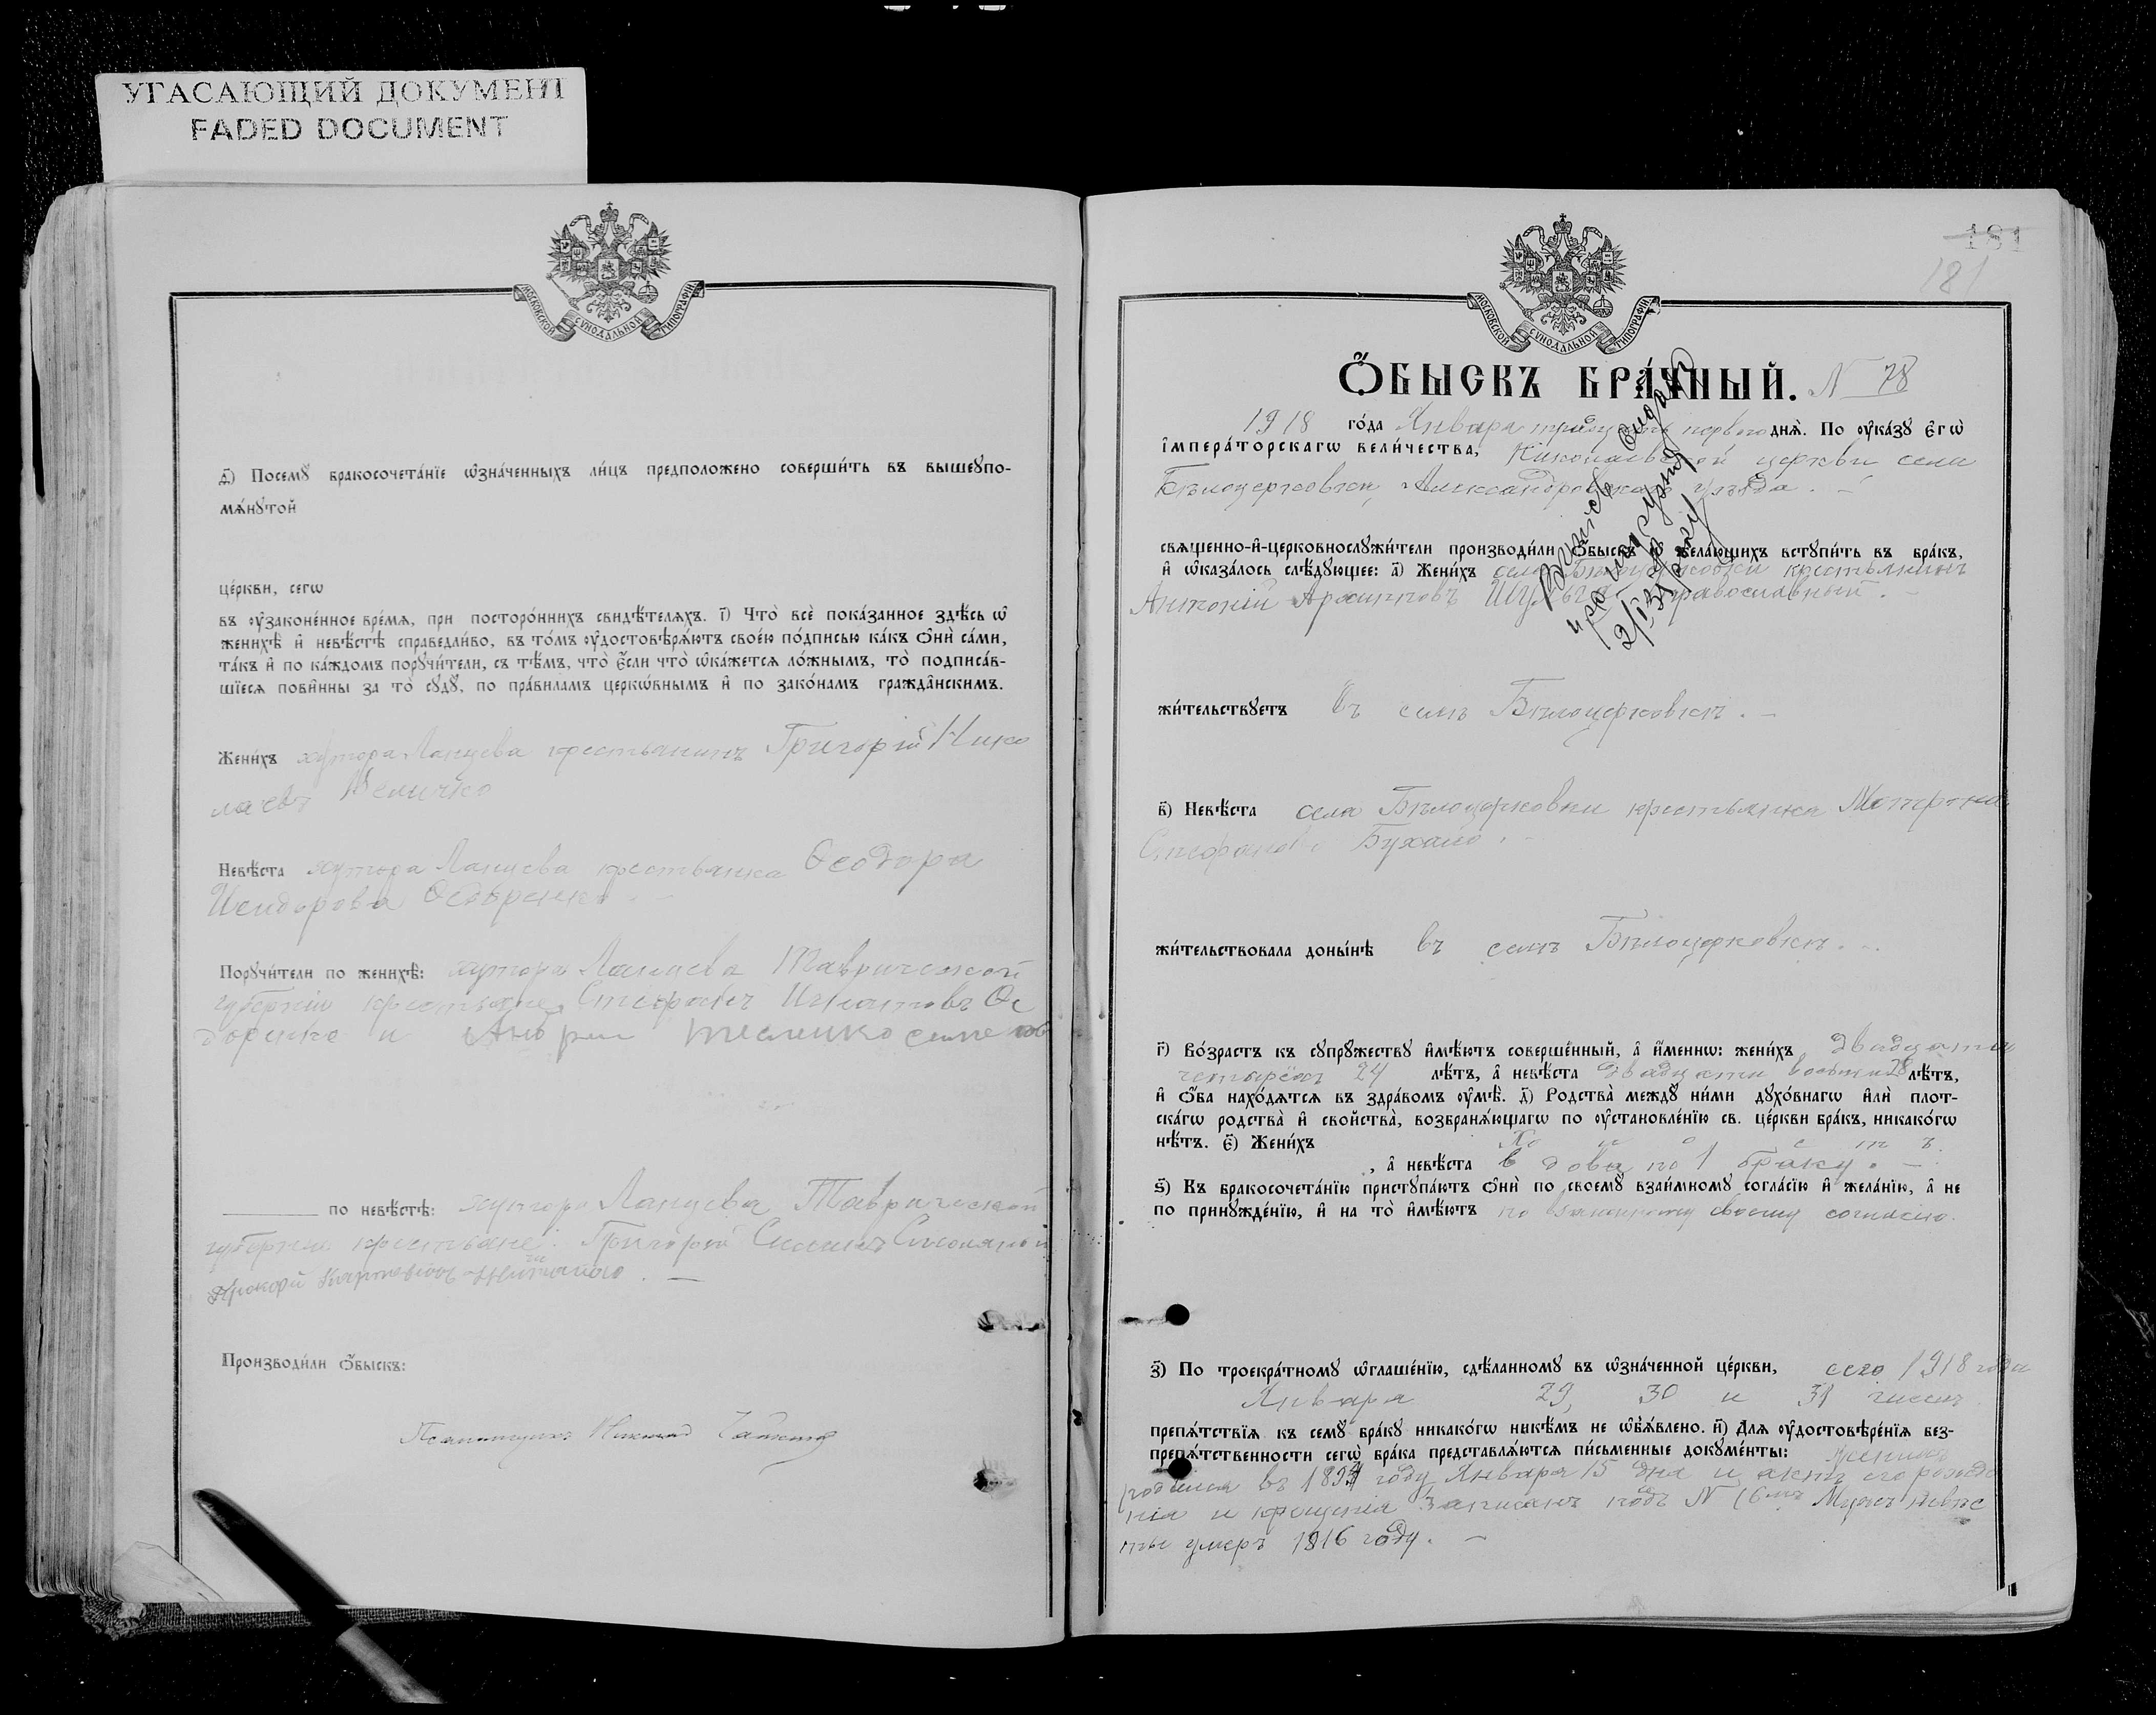 УГАСАЮЩИЙ ДОКУМЕНТ
FADED DOCUMENT
МОСКОВСКОЙ СУНОДАЛЬНОЙ ТИПОГРАФІИ
д҃) Посемꙋ̀ бракосочета́нїе ѡ҆зна́ченныхъ ли́цъ предположено соверши́ть въ вышеꙋпо-
мѧ́нꙋтой
це́ркви, сегѡ
въ ᲂу҆законе́нное вре́мѧ, при посторо́ннихъ свидѣ́телѧхъ. і҃) Что̀ всѐ пока́занное здѣ́сь ѡ҆
женихѣ̀ и҆ невѣ́стѣ справедли́во, въ то́мъ ᲂу҆достовѣрѧ́ютъ свое́ю по́дписью ка́къ ѻ҆нѝ са́ми,
та́къ и҆ по ка́ждомъ порꙋчи́тели, съ тѣ́мъ, что̀ є҆́сли что̀ ѡ҆ка́жетсѧ ло́жнымъ, то̀ подписа́в-
шїесѧ пови́нны за то̀ сꙋдꙋ̀, по пра́виламъ церкѡ́внымъ и҆ по зако́намъ гражда̂нскимъ.
Жени́хъ хутора Ланцева крестьянинъ Григорій Нико
лаевъ Величко
Невѣ́ста хутора Ланцева крестьянка Ѳеодора
Исидорова
Порꙋчи́тели по женихѣ̀: хутора Ланцева Таврической
губерніи крестьяне Стефанъ Игнатовъ Ѳе
доренко и Андрей
по невѣ́стѣ: хутора Ланцева Таврической
губерніи крестьяне: Григорій
Прокофій
Производи́ли ѻ҆́быскъ:
Псаломщикъ Николай
МОСКОВСКОЙ СУНОДАЛЬНОЙ ТИПОГРАФІИ
181
181
Ѻ҆́БЫСКЪ БРА́ЧНЫЙ. N 78
1918 го́да Января тридцать перваго днѧ̀. По ᲂу҆ка́зꙋ є҆гѡ̀
і҆мпера́торскагѡ вели́чества, Николаевской церкви села
Бѣлоцерковки, Александровскаго уѣзда. –
свѧщенно-и҆-церковнослꙋжи́тели производи́ли ѻ҆́быскъ ѡ҆ жела́ющихъ встꙋпи́ть въ бра́къ,
и҆ ѡ҆каза́лось слѣ́дꙋющее: а҃) Жени́хъ села Бѣлоцерковки крестьянинъ
Антоній Архиповъ православный. –
жи́тельствꙋетъ въ селѣ Бѣлоцерковкѣ. –
в҃) Невѣ́ста села Бѣлоцерковки крестьянка Матрона
Стефанова
жи́тельствовала доны́нѣ въ селѣ Бѣлоцерковкѣ. –
г҃) Во́зрастъ къ сꙋпрꙋ́жествꙋ и҆мѣ́ютъ соверше́нный, а҆ и҆́меннѡ: жени́хъ двадцати
четырехъ 24 лѣ́тъ, а҆ невѣ́ста двадцати восьми 28 лѣ́тъ,
и҆ ѻ҆́ба нахо́дѧтсѧ въ здра́вомъ ᲂу҆мѣ̀. д҃) Родства̀ междꙋ̀ ни́ми дꙋхо́внагѡ и҆лѝ плот-
ска́гѡ родства̀ и҆ свойства̀, возбранѧ́ющагѡ по ᲂу҆становле́нїю св. це́ркви бра́къ, никако́гѡ
нѣ́тъ. є҃) Жени́хъ холостъ.
, а҆ невѣ́ста вдова по 1 браку. –
ѕ҃) Къ бракосочета́нїю пристꙋпа́ютъ ѻ҆нѝ по своемꙋ̀ взаи́мномꙋ согла́сїю и҆ жела́нїю, а҆ не
по принꙋжде́нїю, и҆ на то̀ и҆мѣ́ютъ по взаимному своему согласію.
з҃) По троекра́тномꙋ ѡ҆глаше́нїю, сдѣ́ланномꙋ въ ѡ҆зна́ченной це́ркви, сего 1918 года
Января 29, 30 и 31 чиселъ
препѧ́тствїѧ къ семꙋ̀ бра́кꙋ никако́гѡ никѣ́мъ не ѡ҆б̾ѧ́влено. и҃) Длѧ ᲂу҆достовѣре́нїѧ без-
препѧ́тственности сегѡ̀ бра́ка представлѧ́ютсѧ пи́сьменные докꙋме́нты: женихъ
родился въ 1894 году Января 15 дня и актъ его рожде
нія и крещенія записанъ подъ N 16мъ Мужъ невѣс
ты умеръ 1916 году. –